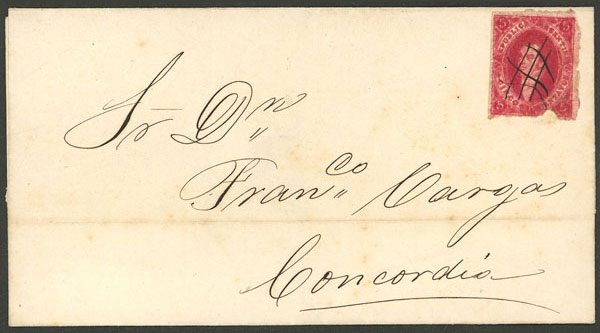 Sr Dn
Franco Vargas
Concordia
5 5
5 5